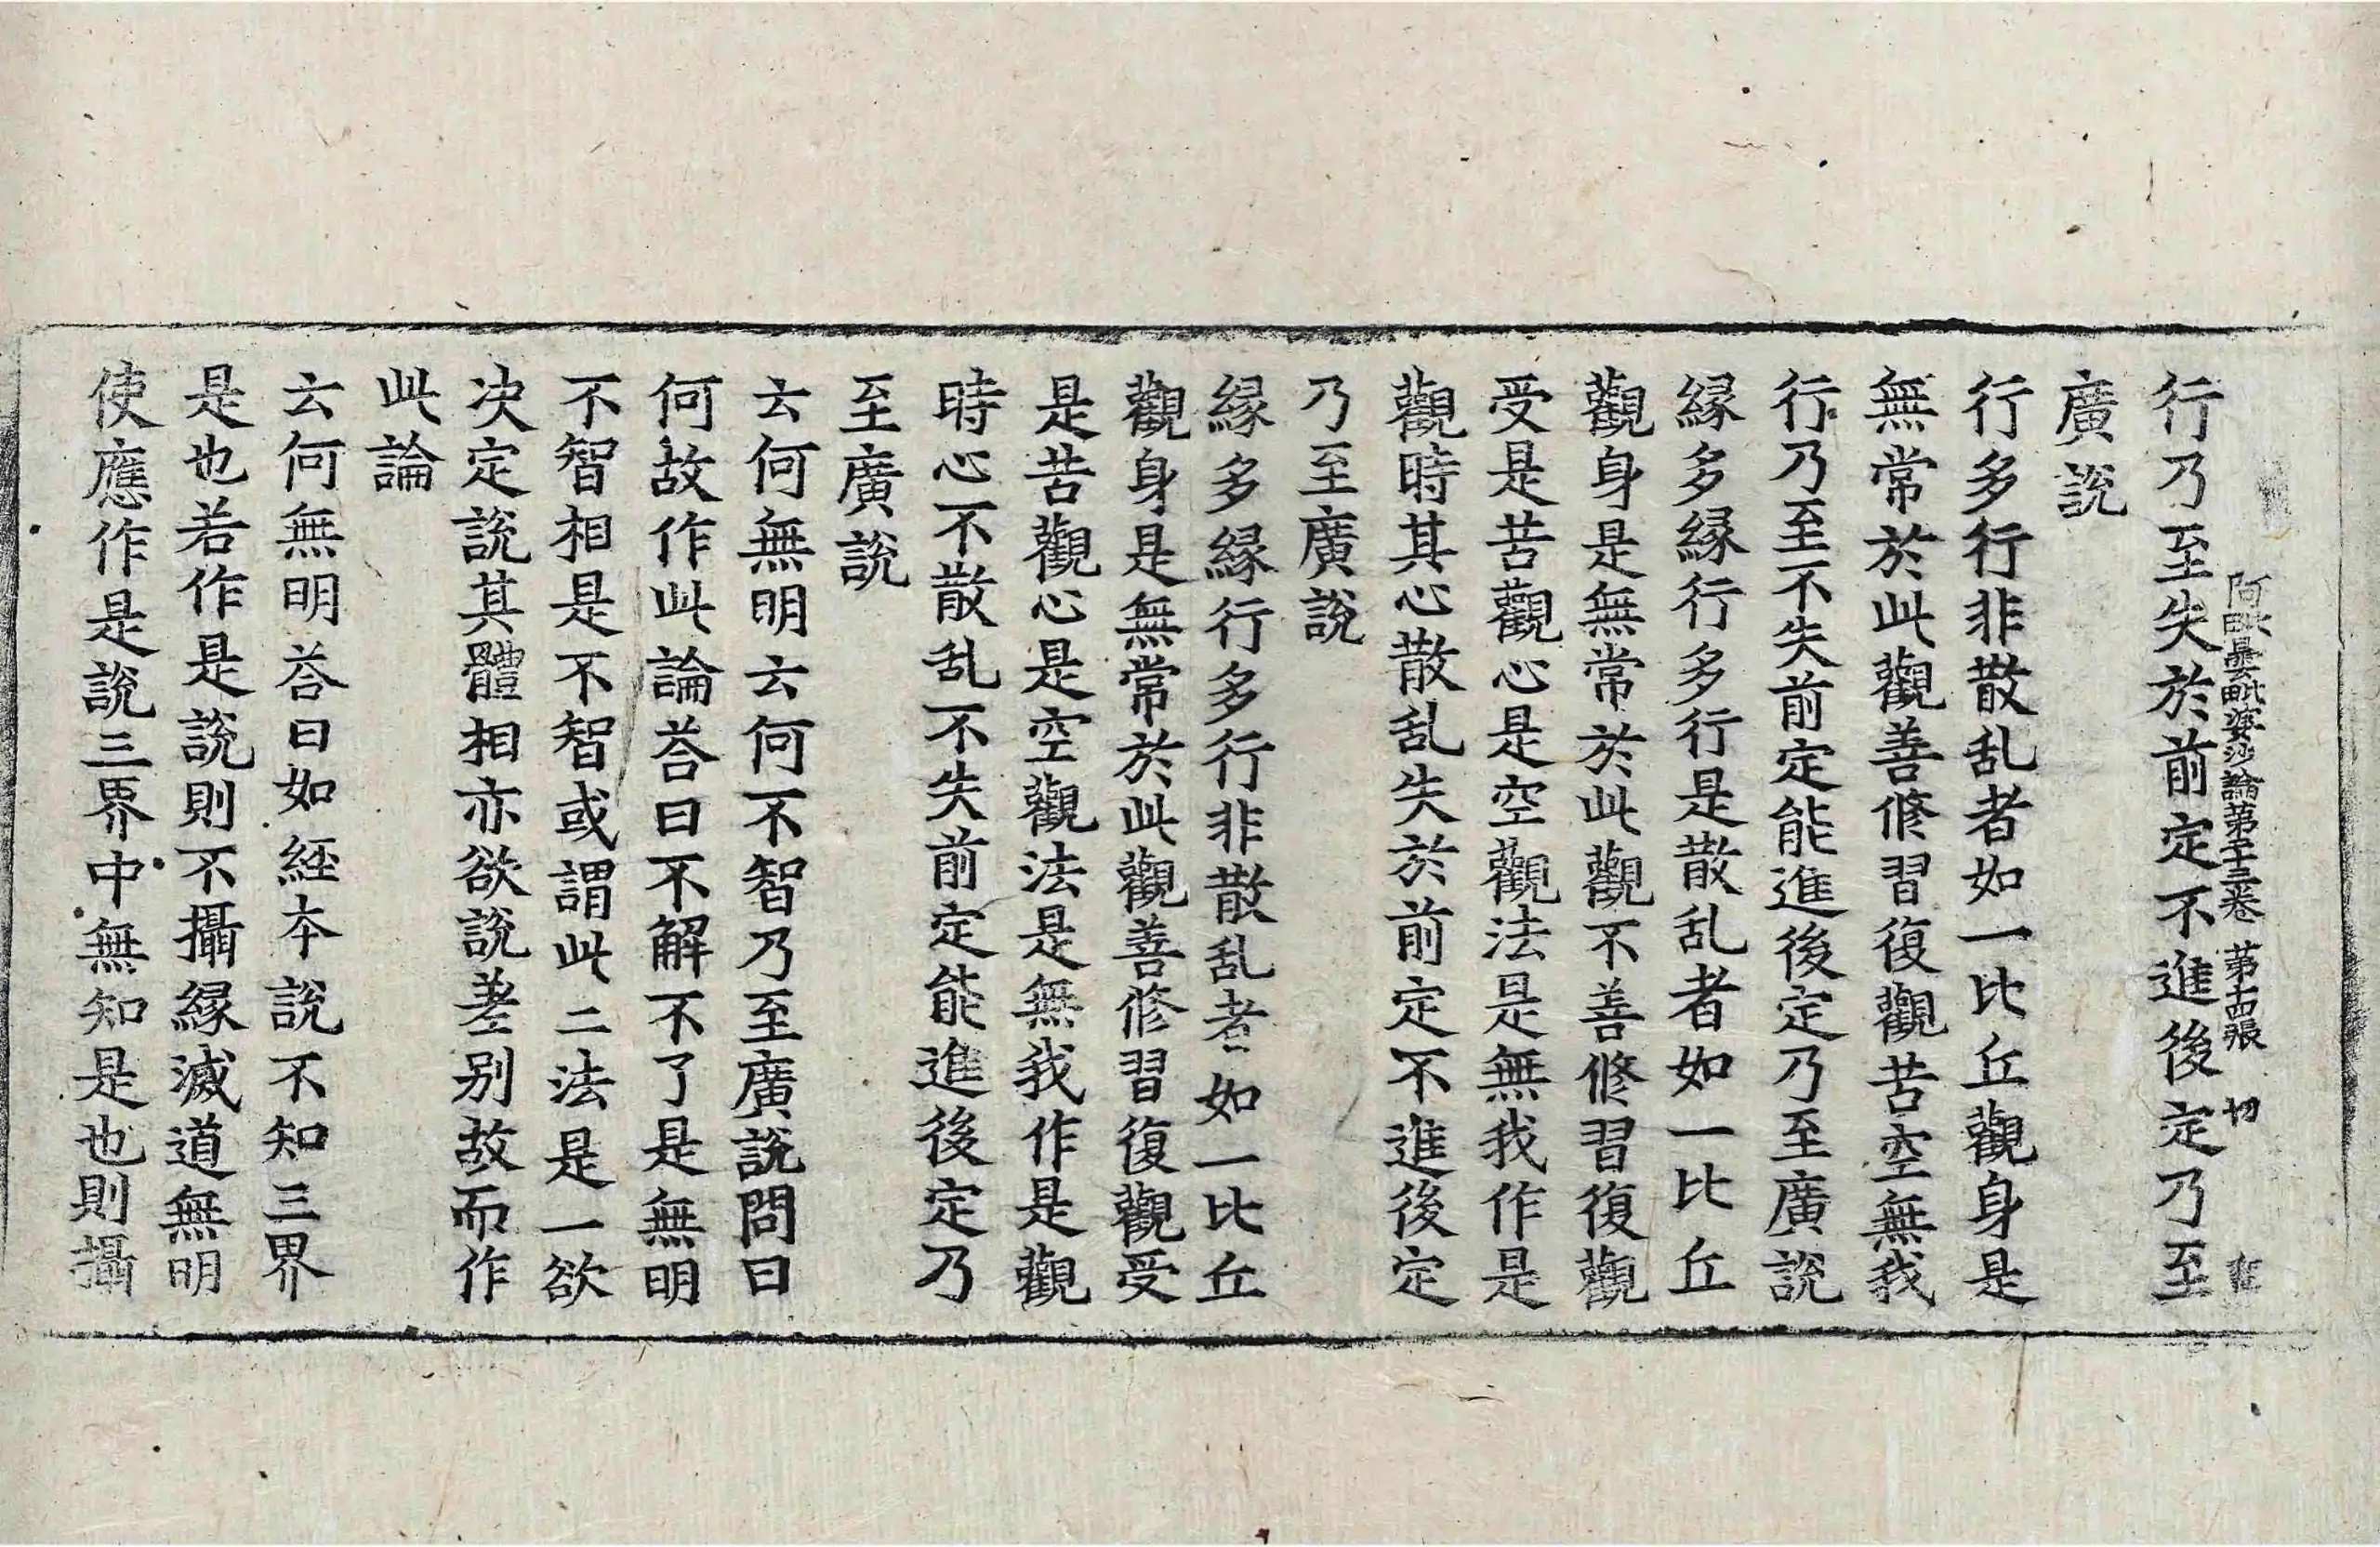 阿毗曇毗婆沙論第二十三卷　第十四張　切
行乃至失於前定不進後定乃至
廣說
行多行非散乱者如一比丘觀身是
無常於此觀善修習復觀苦空無我
行乃至不失前定能進後定乃至廣說
緣多緣行多行是散乱者如一比丘
觀身是無常於此觀不善修習復觀
受是苦觀心是空觀法是無我作是
觀時其心散乱失於前定不進後定
乃至廣說
緣多緣行多行非散乱者如一比丘
觀身是無常於此觀善修習復觀受
是苦觀心是空觀法是無我作是觀
時心不散乱不失前定能進後定乃
至廣說
云何無明云何不智乃至廣說問曰
何故作此論荅曰不解不了是無明
不智相是不智或謂此二法是一欲
决定說其體相亦欲說差別故而作
此論
云何無明荅曰如經本說不知三界
是也若作是說則不攝緣滅道無明
使應作是說三界中無知是也則攝